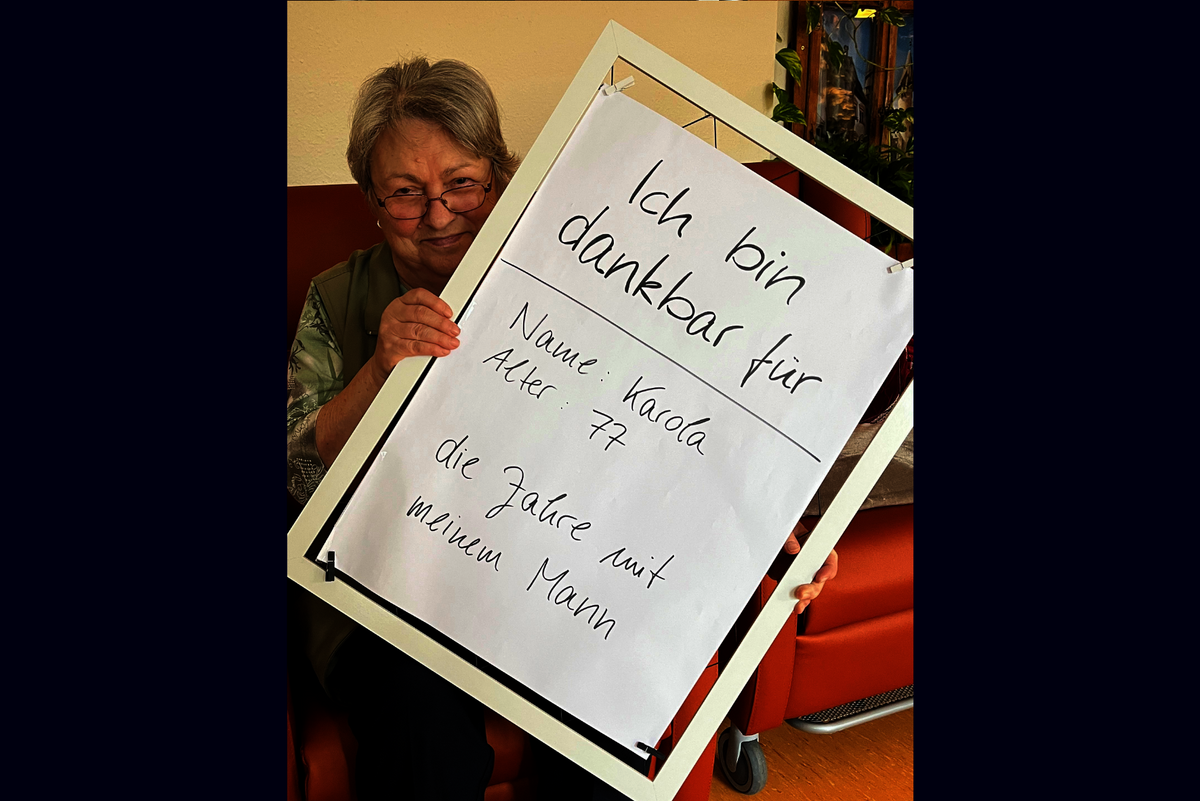 Ich bin
dankbar für
Name: Karola
Alter: 77
die Jahre mit
meinem Mann